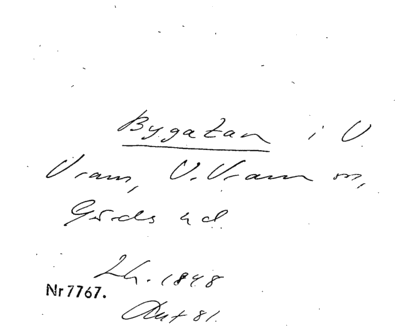 Bygatan i V.
Vram, V. Vram sn,
Gärds hd.
Lh. 1848
Nr 7767.
81.